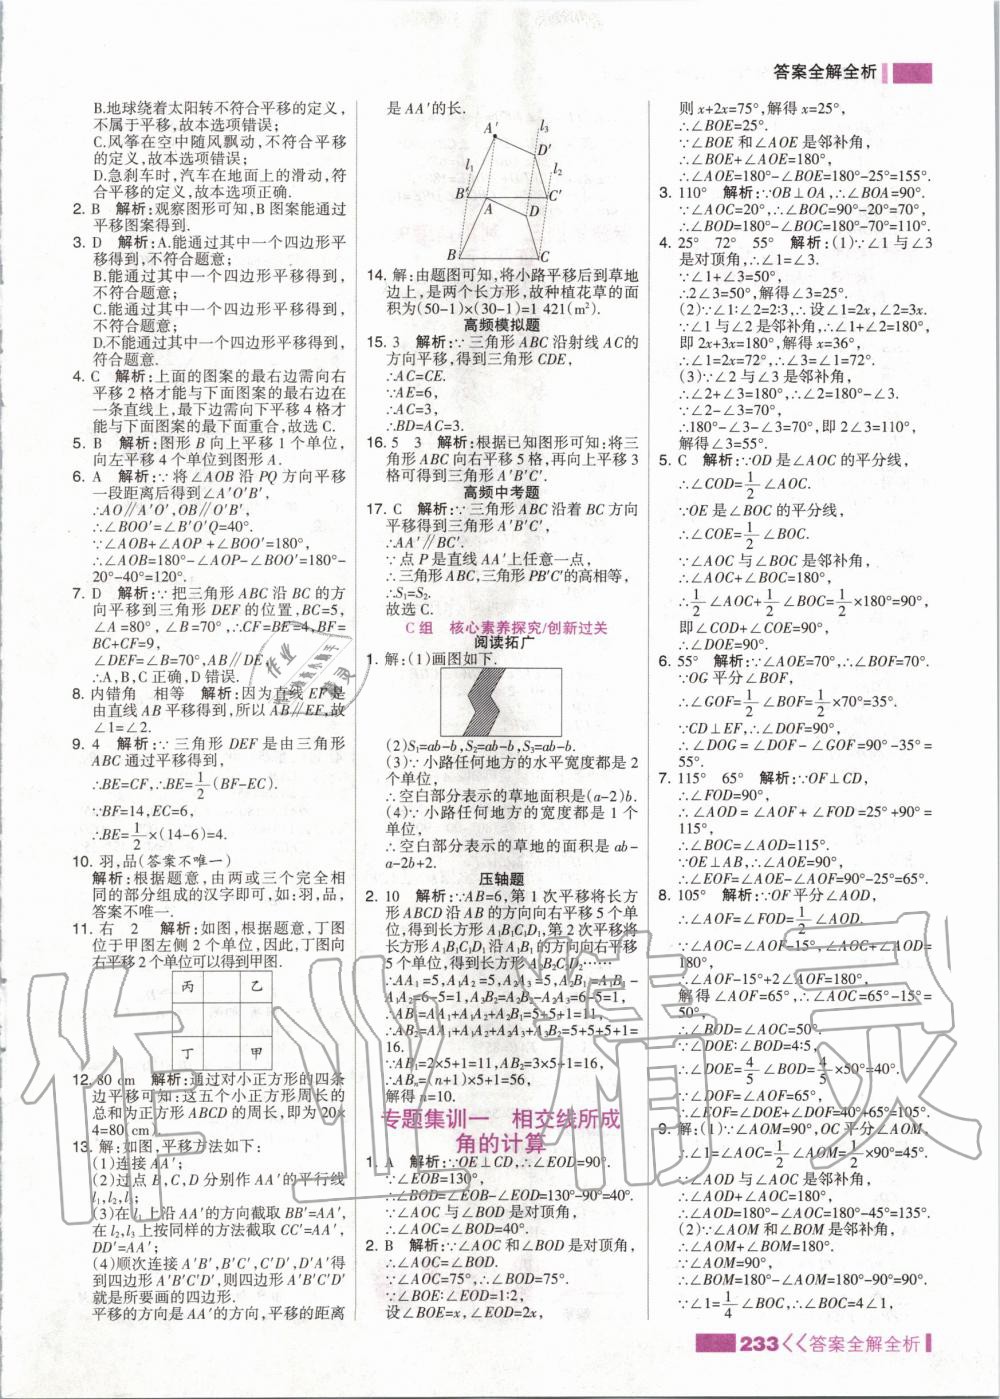 答案全解全析
B.地球绕着太阳转不符合平移的定义,
不属于平移,故本选项错误;
C.风筝在空中随风飘动,不符合平移
的定义,故本选项错误;
D.急刹车时,汽车在地面上的滑动,符
合平移的定义,故本选项正确.
2. B 解析:观察图形可知,B图案能通过
平移图案得到.
3. D 解析:A.能通过其中一个四边形平
移得到,不符合题意;
B.能通过其中一个四边形平移得到,
不符合题意;
C.能通过其中一个四边形平移得到,
不符合题意;
D.不能通过其中一个四边形平移得到,
符合题意.
4. C 解析:上面的图案的最右边需向右
平移2格才能与下面图案的最右边在
一条直线上,最下边需向下平移4格才
能与下面图案的最下面重合,故选C.
5. B 解析:图形B向上平移1个单位,
向左平移4个单位到图形A.
6. A 解析:∵将∠AOB沿PQ方向平移
一段距离后得到∠A′O′B′,
∴AO∥A′O′,OB∥O′B′,
∴∠BOO′=∠B′O′Q=40°.
∵∠AOB+∠AOP+∠BOO′=180°,
∴∠AOB=180°-∠AOP-∠BOO′=180°-
20°-40°=120°.
7. D 解析:∵把三角形ABC沿BC的方
向平移到三角形DEF的位置,BC=5,
∠A=80°,∠B=70°,∴CF=BE=4,BF=
BC+CF=9,
∠DEF=∠B=70°,AB∥DE,
∴A,B,C正确,D错误.
8. 内错角 相等 解析:因为直线EF是
由直线AB平移得到,所以AB∥EF,故
∠1=∠2.
9. 4 解析:∵三角形DEF是由三角形
ABC通过平移得到,
∴BE=CF,∴BE=1/2(BF-EC).
∵BF=14,EC=6,
∴BE=1/2×(14-6)=4.
10. 羽,品(答案不唯一)
解析:根据题意,由两或三个完全相
同的部分组成的汉字即可,如:羽,品,
答案不唯一.
11. 右 2 解析:如图,根据题意,丁图
位于甲图左侧2个单位,因此,丁图向
右平移2个单位可以得到甲图.
丙 乙
丁 甲
12. 80 cm 解析:通过对小正方形的四条
边平移可知:这五个小正方形周长的
总和为正方形ABCD的周长,即为20×
4=80(cm).
13. 解:如图,平移方法如下:
(1)连接AA′;
(2)过点B,C,D分别作AA′的平行线
l₁,l₂,l₃;
(3)在l₁上沿AA′的方向截取BB′=AA′,
在l₂,l₃上按同样的方法截取CC′=AA′,
DD′=AA′;
(4)顺次连接A′B′,B′C′,C′D′,D′A′得
到四边形A′B′C′D′,则四边形A′B′C′D′
就是所要画的四边形.
平移的方向是AA′的方向,平移的距离
是AA′的长.
A′ l₃ D′ l₁ l₂ B′ C′ A D B C
14. 解:由题图可知,将小路平移后到草地
边上,是两个长方形,故种植花草的面
积为(50-1)×(30-1)=1 421(m²).
高频模拟题
15. 3 解析:∵三角形ABC沿射线AC的
方向平移,得到三角形CDE,
∴AC=CE.
∵AE=6,
∴AC=3,
∴BD=AC=3.
16. 5 3 解析:根据已知图形可知:将三
角形ABC向右平移5格,再向上平移3
格可得到三角形A′B′C′.
高频中考题
17. C 解析:∵三角形ABC沿着BC方向
平移得到三角形A′B′C′,
∴AA′∥BC′.
∵点P是直线AA′上任意一点,
∴三角形ABC,三角形PB′C′的高相等,
∴S₁=S₂.
故选C.
C组 核心素养探究/创新过关
阅读拓广
1. 解:(1)画图如下.
(2)S₁=ab-b,S₂=ab-b,S₃=ab-b.
(3)∵小路任何地方的水平宽度都是2
个单位,
∴空白部分表示的草地面积是(a-2)b.
(4)∵小路任何地方的宽度都是1个
单位,
∴空白部分表示的草地的面积是ab-
a-2b+2.
压轴题
2. 10 解析:∵AB=6,第1次平移将长方
形ABCD沿AB的方向向右平移5个单
位,得到长方形A₁B₁C₁D₁,第2次平移将
长方形A₁B₁C₁D₁沿A₁B₁的方向向右平移
5个单位,得到长方形A₂B₂C₂D₂……
∴AA₁=5,A₁A₂=5,A₂B₁=A₁B₁-
A₁A₂=6-5=1,A₂B₂=A₁B₂-A₁A₂=6-5=1,
∴AB₁=AA₁+A₁A₂+A₂B₁=5+5+1=11,
∴AB₂=AA₁+A₁A₂+A₂A₃+A₃B₂=5+5+5+1=
16.
∵AB₁=2×5+1=11,AB₂=3×5+1=16,
∴ABₙ=(n+1)×5+1=56,
解得n=10.
专题集训一 相交线所成
角的计算
1. A 解析:∵OE⊥CD,∴∠EOD=90°.
∵∠EOB=130°,
∴∠BOD=∠EOB-∠EOD=130°-90°=40°.
∵∠AOC与∠BOD是对顶角,
∴∠AOC=∠BOD=40°.
2. B 解析:∵∠AOC和∠BOD是对顶角,
∴∠AOC=∠BOD.
∵∠AOC=75°,∴∠BOD=75°.
∵∠BOE∶∠EOD=1∶2,
设∠BOE=x,∠EOD=2x,
则x+2x=75°,解得x=25°,
∴∠BOE=25°.
∵∠BOE和∠AOE是邻补角,
∴∠BOE+∠AOE=180°,
∴∠AOE=180°-∠BOE=180°-25°=155°.
3. 110° 解析:∵OB⊥OA,∴∠BOA=90°.
∵∠AOC=20°,∴∠BOC=90°-20°=70°,
∴∠BOD=180°-∠BOC=180°-70°=110°.
4. 25° 72° 55° 解析:(1)∵∠1与∠3
是对顶角,∴∠1=∠3.
∵∠1+∠3=50°,
∴2∠3=50°,解得∠3=25°.
(2)∵∠1∶∠2=2∶3,∴设∠1=2x,∠2=3x.
∵∠1与∠2是邻补角,∴∠1+∠2=180°,
即2x+3x=180°,解得x=36°,
∴∠1=2x=72°,∴∠1=72°.
(3)∵∠2与∠3是邻补角,
∴∠2+∠3=180°,∴∠2=180°-∠3.
∵∠2-∠3=70°,
∴180°-∠3-∠3=70°,即2∠3=110°,
解得∠3=55°.
5. C 解析:∵OD是∠AOC的平分线,
∴∠COD=1/2∠AOC.
∵OE是∠BOC的平分线,
∴∠COE=1/2∠BOC.
∵∠AOC与∠BOC是邻补角,
∴∠AOC+∠BOC=180°,
∴1/2∠AOC+1/2∠BOC=1/2×180°=90°,
即∠COD+∠COE=90°,
∴∠DOE=90°.
6. 55° 解析:∵∠AOE=70°,∴∠BOF=70°.
∵OG平分∠BOF,
∴∠GOF=1/2∠BOF=1/2×70°=35°.
∵CD⊥EF,∴∠DOF=90°,
∴∠DOG=∠DOF-∠GOF=90°-35°=
55°.
7. 115° 65° 解析:∵OF⊥CD,
∴∠FOD=90°,
∴∠AOD=∠AOF+∠FOD=25°+90°=
115°,
∴∠BOC=∠AOD=115°.
∵OE⊥AB,∴∠AOE=90°,
∴∠EOF=∠AOE-∠AOF=90°-25°=65°.
8. 105° 解析:∵OF平分∠AOD,
∴∠AOF=∠FOD=1/2∠AOD.
∵∠AOC=∠AOF-15°,∠AOC+∠AOD=
180°,
∴∠AOF-15°+2∠AOF=180°,
解得∠AOF=65°,∴∠AOC=65°-15°=
50°,
∴∠BOD=∠AOC=50°.
∵∠DOE∶∠BOD=4∶5,
∴∠DOE=4/5∠BOD=4/5×50°=40°.
∵∠DOF=∠AOF=65°,
∴∠EOF=∠DOE+∠DOF=40°+65°=105°.
9. 解:(1)∵∠AOM=90°,OC平分∠AOM,
∴∠1=∠AOC=1/2∠AOM=1/2×90°=45°.
∵∠AOD与∠AOC是邻补角,
∴∠AOD+∠AOC=180°,
∴∠AOD=180°-∠AOC=180°-45°=135°.
(2)∵∠AOM和∠BOM是邻补角,
∴∠AOM+∠BOM=180°.
∵∠AOM=90°,
∴∠BOM=180°-∠AOM=180°-90°=90°.
∵∠1=1/4∠BOC,∴∠BOC=4∠1,
233 答案全解全析
作业精灵